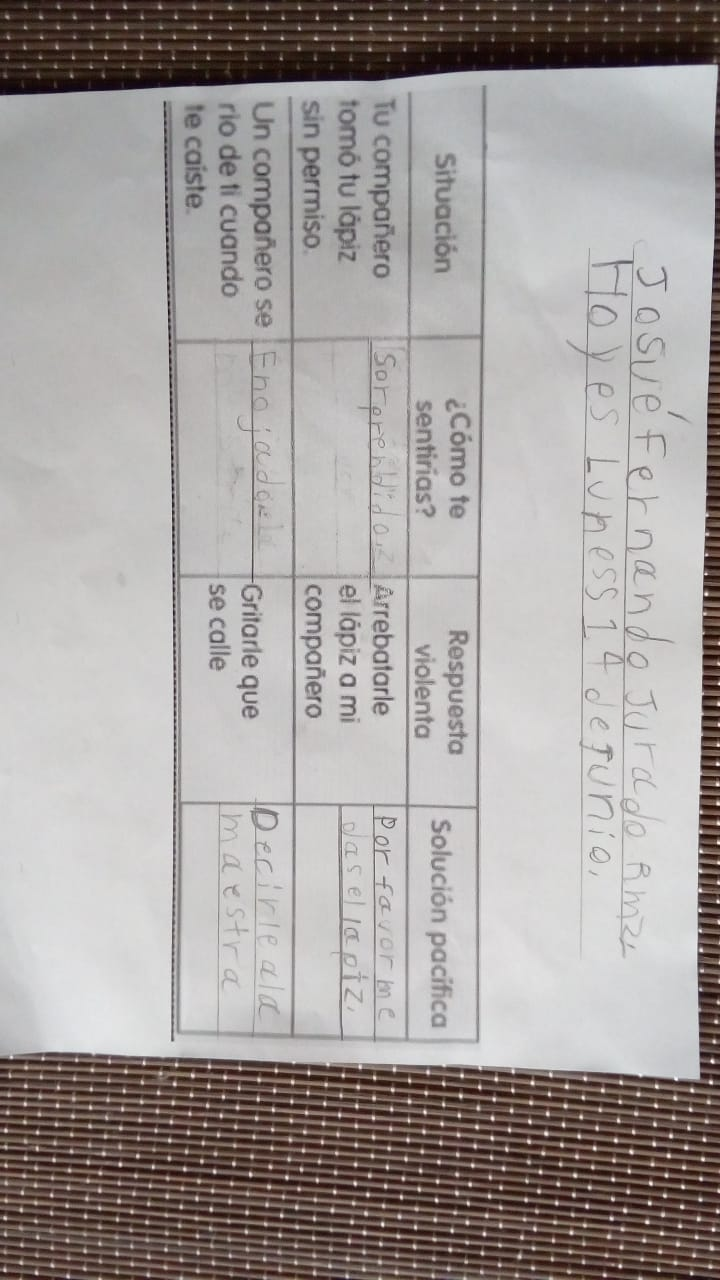 Josué Fernando Jurado Rmz
Hoy es Luness 14 de Junio.
Situación
¿Cómo te
sentirías?
Respuesta
violenta
Solución pacífica
Tu compañero
tomó tu lápiz
sin permiso.
Sorprendido.
Arrebatarle
el lápiz a mi
compañero
Por favor me
das el lapiz.
Un compañero se
rio de ti cuando
te caiste.
Enojado
Gritarle que
se calle
Decirle a la
maestra